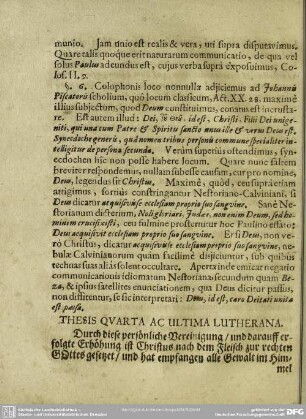 munio. Jam unio est realis & vera, uti supra disputavimus.
Quare talis quoque erit naturarum communicatio, de qua vel
solus Paulus adeundus est, cujus verba supra exposuimus, Co-
los. II. 9.
§. 6. Colophonis loco nonnulla adjiciemus ad Johannis
Piscatoris scholium, quô locum classicum, Act. XX. 28. maximè
illius subjectum, quod Deum constituimus, conatus est incrusta-
re. Est autem illud: Dei, id est, Christi. Filii Dei unige-
niti, qui una cum Patre & Spiritu sancto unus ille & verus Deus est.
Synecdoche generis, quâ nomen tribus personis commune specialiter in-
telligitur de persona secunda. Verùm superiùs ostendimus, syn-
ecdochen hîc non posse habere locum. Quare nunc saltem
breviter respondemus, nullam subesse causam, cur pro nomine,
Deus, legendus sit Christus, Maximè, quod, ceu supra etiam
attigimus, fornices constringantur Nestoriano-Calviniani, si
Deus dicatur acquisivisse ecclesiam propriô suo sangvine. Sanè Ne-
storianum dicterium, Noli gloriari, Judæe, non enim Deum, sed ho-
minem crucifixisti, ceu fulmine prosternitur hoc Paulino effato:
Deus acquisivit ecclesiam propriô suo sangvine. Et si Deus, non ve-
rò Christus, dicatur acquisivisse ecclesiam propriô suo sangvine, ne-
bulæ Calvinianorum quàm facillimè disjiciuntur, sub quibus
technas suas aliàs solent occultare. Apertè inde emicat negatio
communicationis idiomatum Nestoriana secundum quam Be-
za, & ipsius satellites enunciationem, quâ Deus dicitur passus,
non diffitentur, se sic interpretari: Deus, id est, caro Deitati unita
est passa.
THESIS QVARTA AC ULTIMA LUTHERANA.
Durch diese persönliche Vereinigung / und darauff er-
folgte Erhöhung ist Christus nach dem Fleisch zur rechten
GOttes gesetzet / und hat empfangen alle Gewalt im Him-
mel